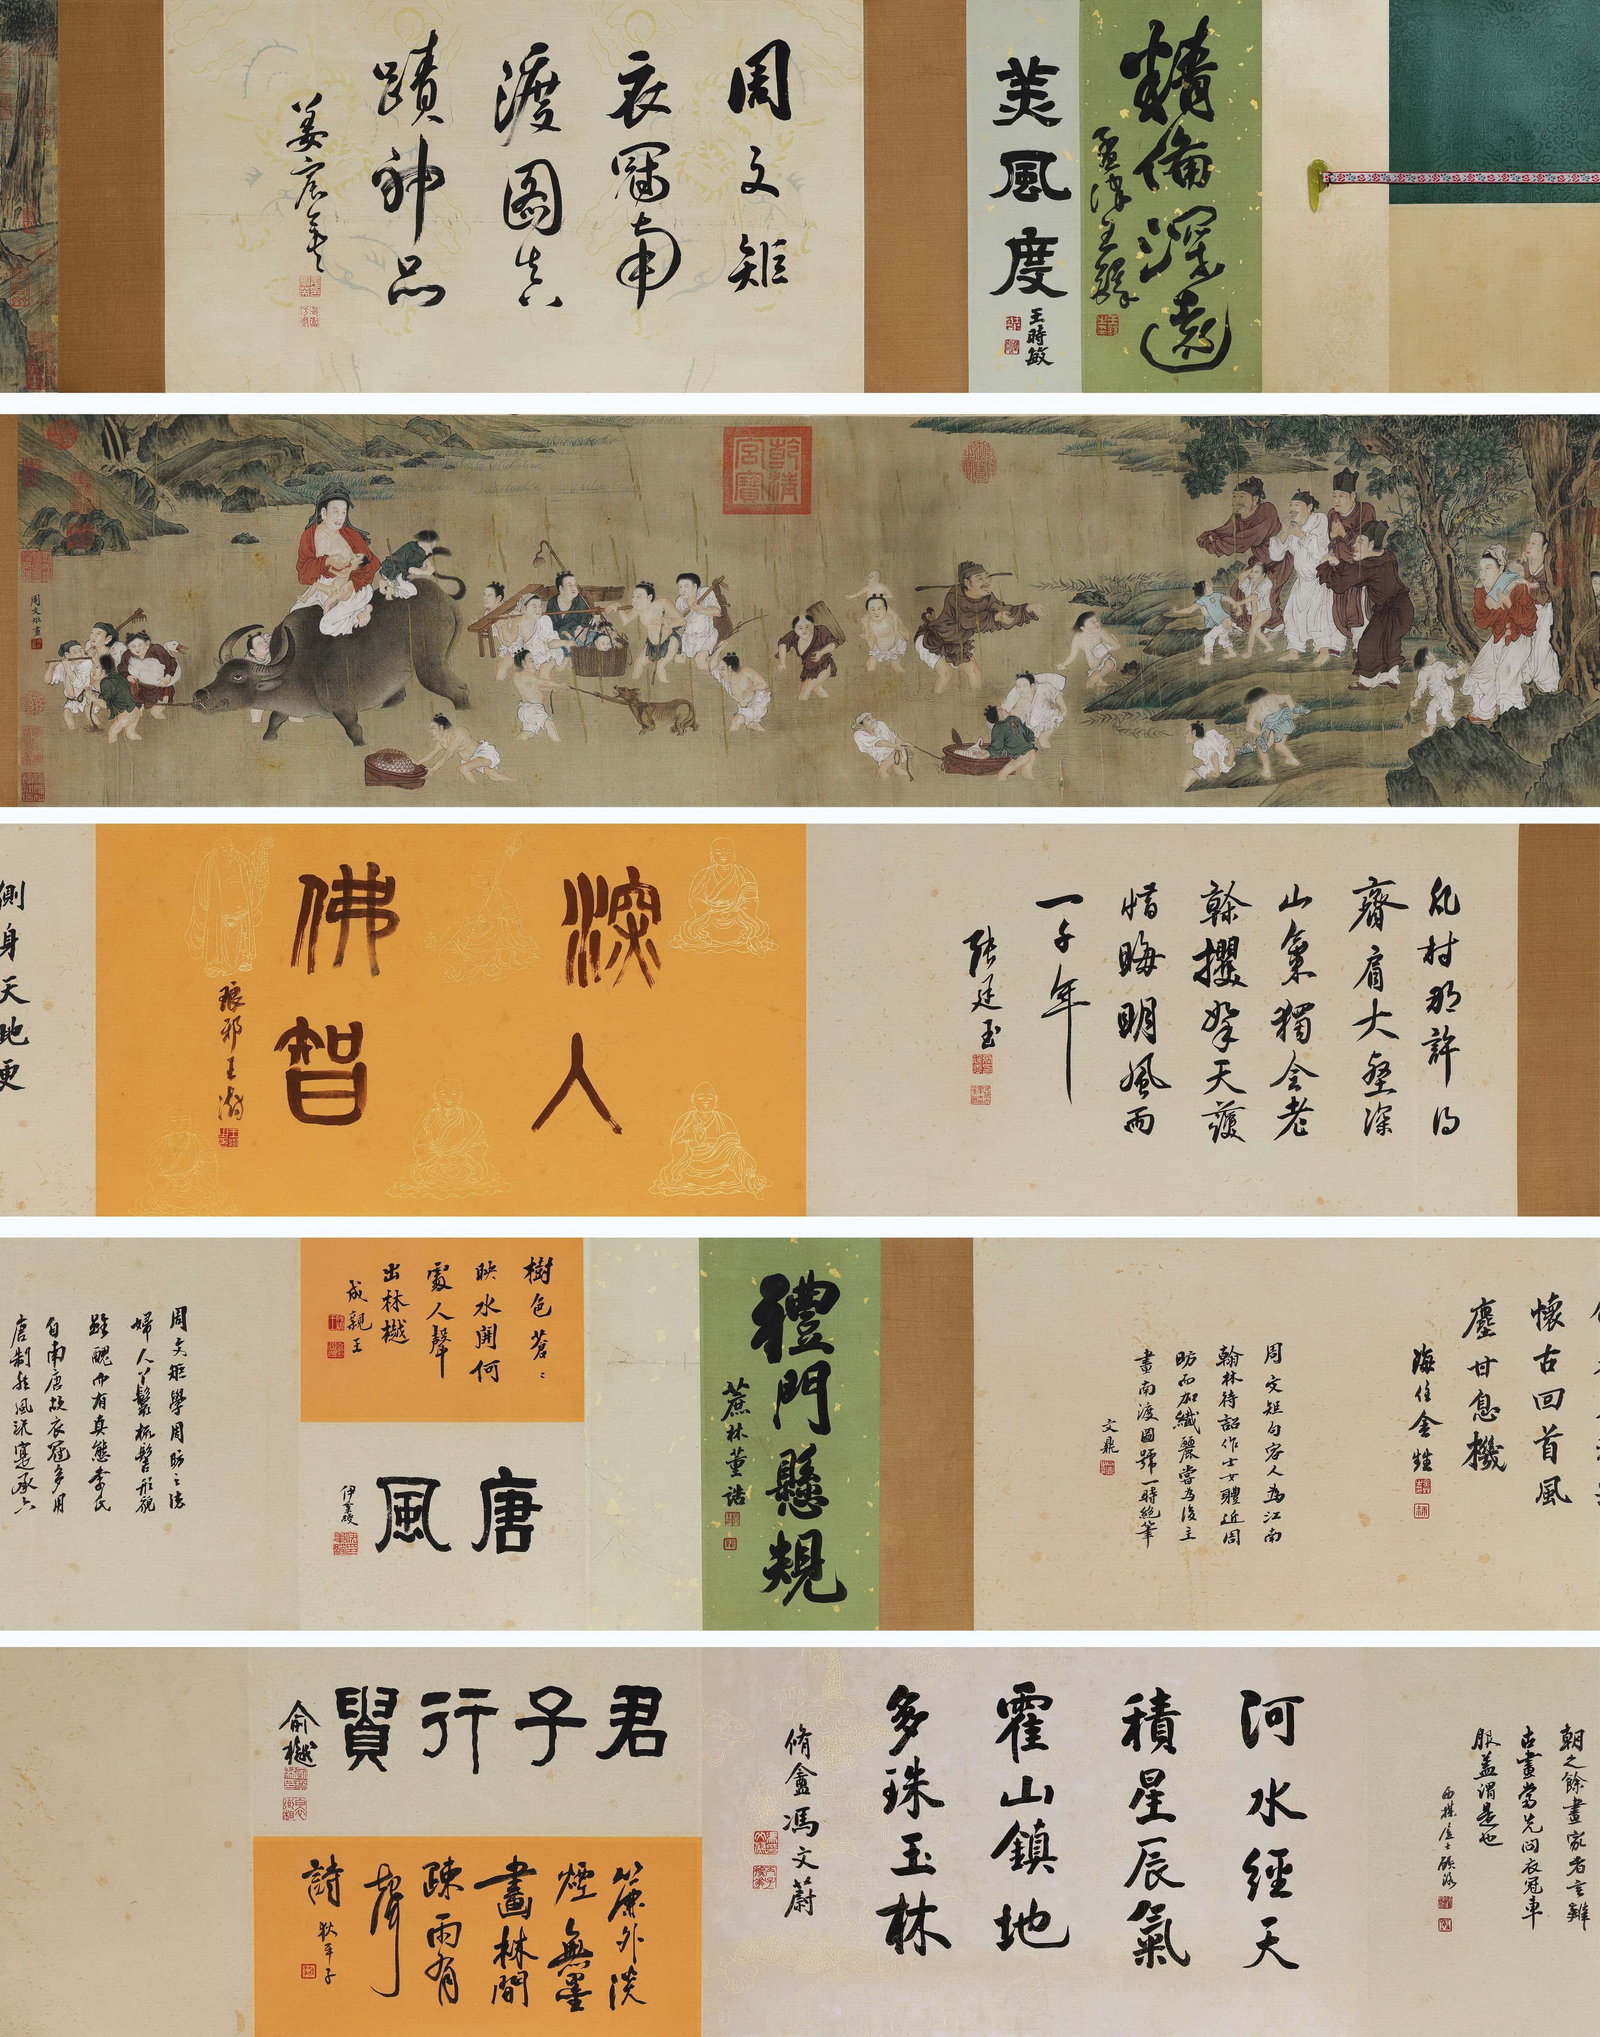 精備深遠
孟津王鐸
美風度
王時敏
周文矩
衣冠南
渡圖真
蹟神品
姜宸英
乾清
宮寶
周文矩畫
凡材那許得
齊肩大壑深
山氣獨全老
榦攫拏天護
惜晦明風雨
一千年
張廷玉
深人
佛智
琅邪王澍
側身天地更
懷古回首風
塵甘息機
海住金甡
周文矩句容人為江南
翰林待詔作士女體近周
昉而加纖麗嘗為後主
畫南渡圖號一時絕筆
文鼎
禮門懸規
蔗林董誥
樹色蒼蒼
映水開何
處人聲
出林樾
成親王
唐風
伊秉綬
周文矩學周昉之法
婦人丫鬟梳髻形貌
雖醜而有真態李氏
自南唐故衣冠多用
唐制然風流寔承六
朝之餘畫家者言雖
古畫當先問衣冠車
服蓋謂是也
西楳居士顧洛
河水經天
積星辰氣
霍山鎮地
多珠玉林
脩盦馮文蔚
君子行賢
俞樾
簾外淡
煙無墨
畫林間
疎雨有
聲
詩
狄平子